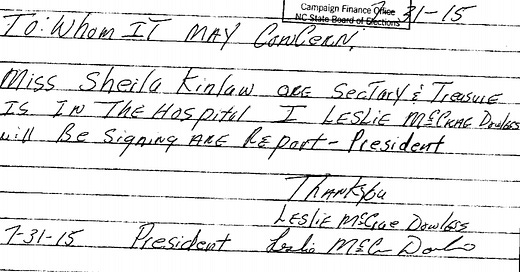 Campaign Finance Office
NC State Board of Elections
31-15
To: Whom IT MAY CONCERN:
Miss Sheila Kinlaw ARE SecTary & Treasure
IS IN The Hospital I LESLIE McCRAE Dowless
will Be Signing ARE Report - President
Thankyou
LESLIE McCrae Dowless
7-31-15 President Leslie McC Dowless